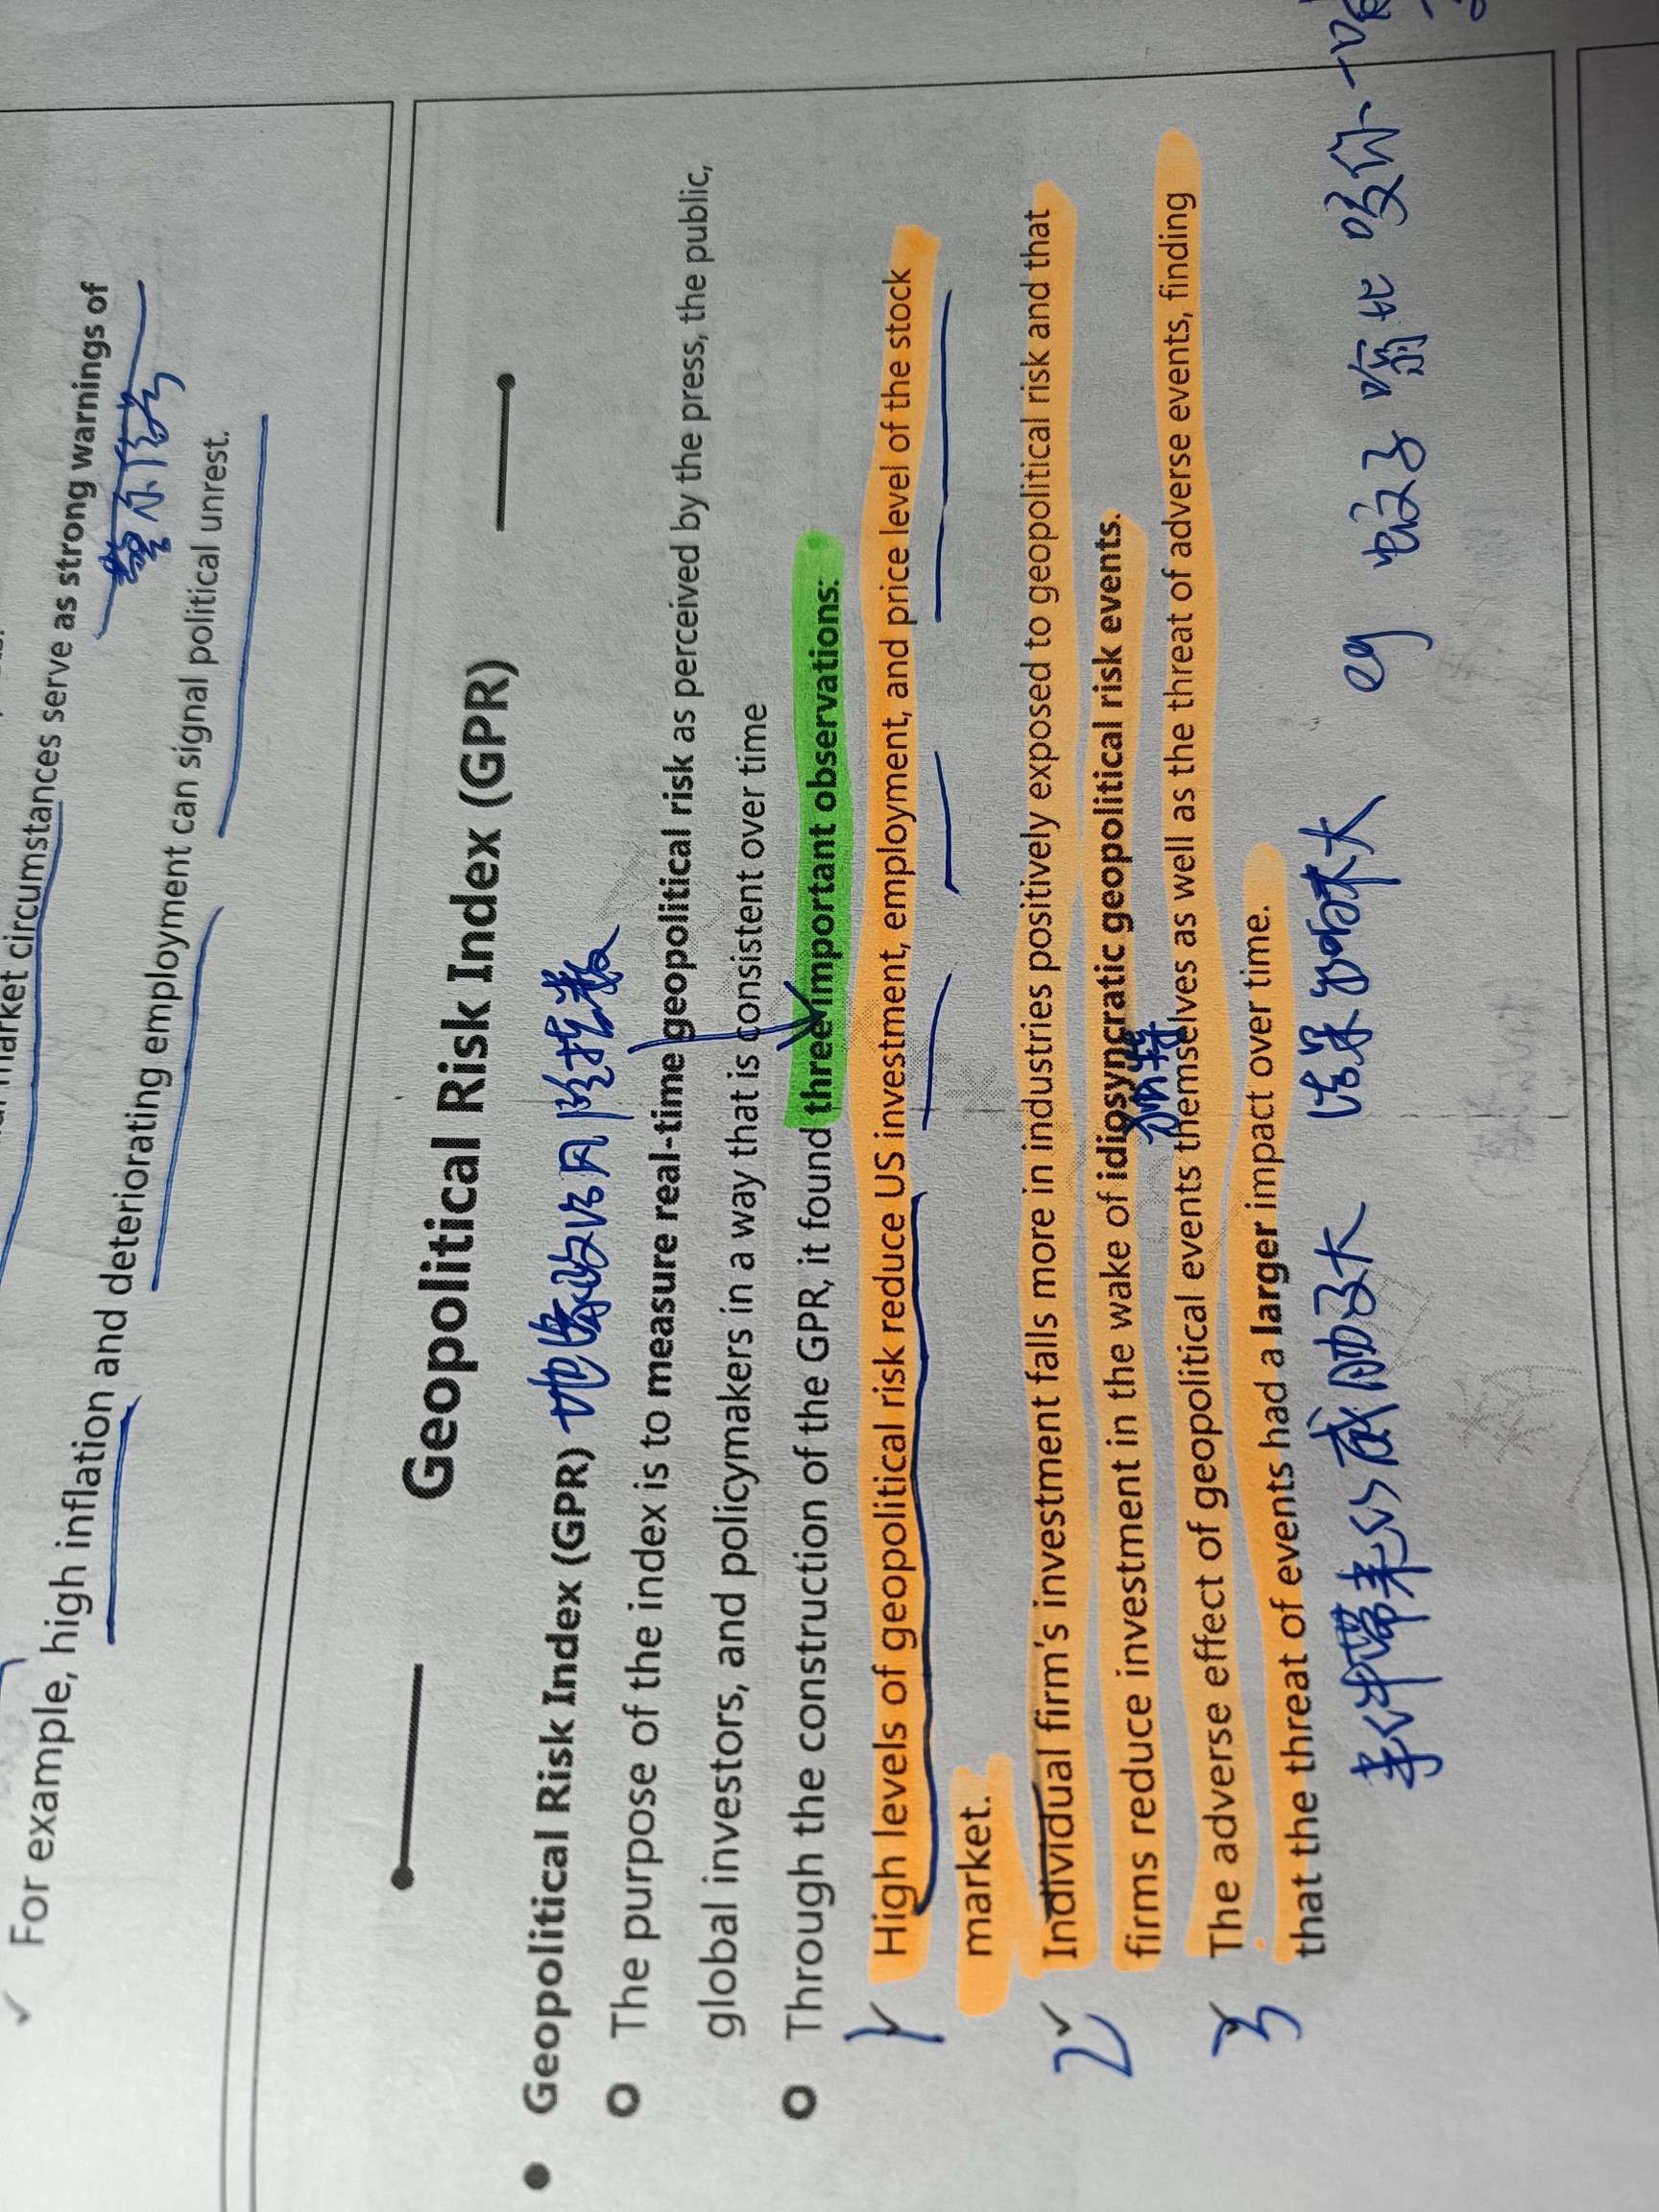 market circumstances serve as strong warnings of
警示信号
political unrest.
✓ For example, high inflation and deteriorating employment can signal political unrest.
Geopolitical Risk Index (GPR)
● Geopolitical Risk Index (GPR) 地缘政治风险指数
○ The purpose of the index is to measure real-time geopolitical risk as perceived by the press, the public,
global investors, and policymakers in a way that is consistent over time
○ Through the construction of the GPR, it found three important observations:
1 ✓ High levels of geopolitical risk reduce US investment, employment, and price level of the stock
market.
2 ✓ Individual firm's investment falls more in industries positively exposed to geopolitical risk and that
firms reduce investment in the wake of idiosyncratic geopolitical risk events.
独特
3 ✓ The adverse effect of geopolitical events themselves as well as the threat of adverse events, finding
that the threat of events had a larger impact over time.
事件带来的威胁更大 结果影响不大
eg 蚊子嗡比咬你一口